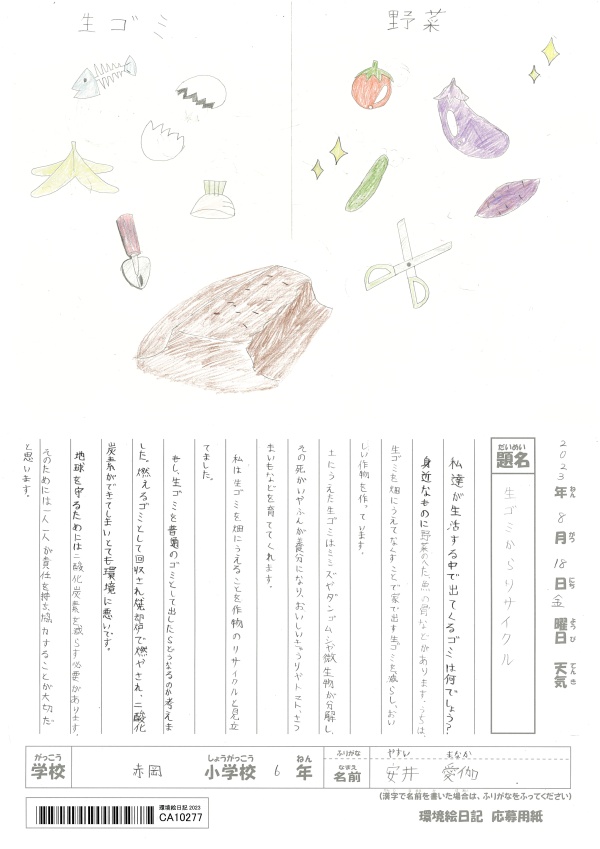 生ゴミ
野菜
2023年ねん 8月がつ 18日にち 金曜日ようび 天気てんき
題名だいめい
生ゴミからリサイクル
私達が生活する中で出てくるゴミは何でしょう?
身近なものに野菜のへた、魚の骨などがあります。うちは、
生ゴミを畑にうえてなくすことで家で出す生ゴミを減らし、おい
しい作物を作っています。
土にうえた生ゴミはミミズやダンゴムシや微生物が分解し、
その死がいやふんが養分になり、おいしいきゅうりやトマト、さつ
まいもなどを育ててくれます。
私は生ゴミを畑にうえることを作物のリサイクルと見立
てました。
もし、生ゴミを普通のゴミとして出したらどうなるのか考えま
した。燃えるゴミとして回収され焼却炉で燃やされ、二酸化
炭素ができてしまいとても環境に悪いです。
地球を守るためには二酸化炭素を減らす必要があります。
そのためには一人一人が責任を持ち協力することが大切だ
と思います。
学校がっこう 赤岡 小学校しょうがっこう 6 年ねん
ふりがな やすい まなか
名前なまえ 安井 愛伽
(漢字で名前を書いた場合は、ふりがなをふってください)
環境絵日記 2023
CA10277
環境絵日記 応募用紙